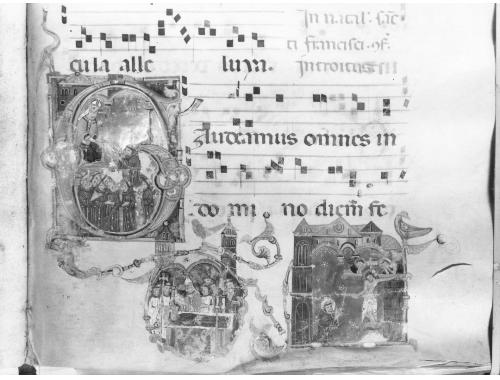 In natil. sāc
ti francisci. ɔf.
cula alle luya. Introitus
Gaudeamus omnes in
do mi. no diem fe